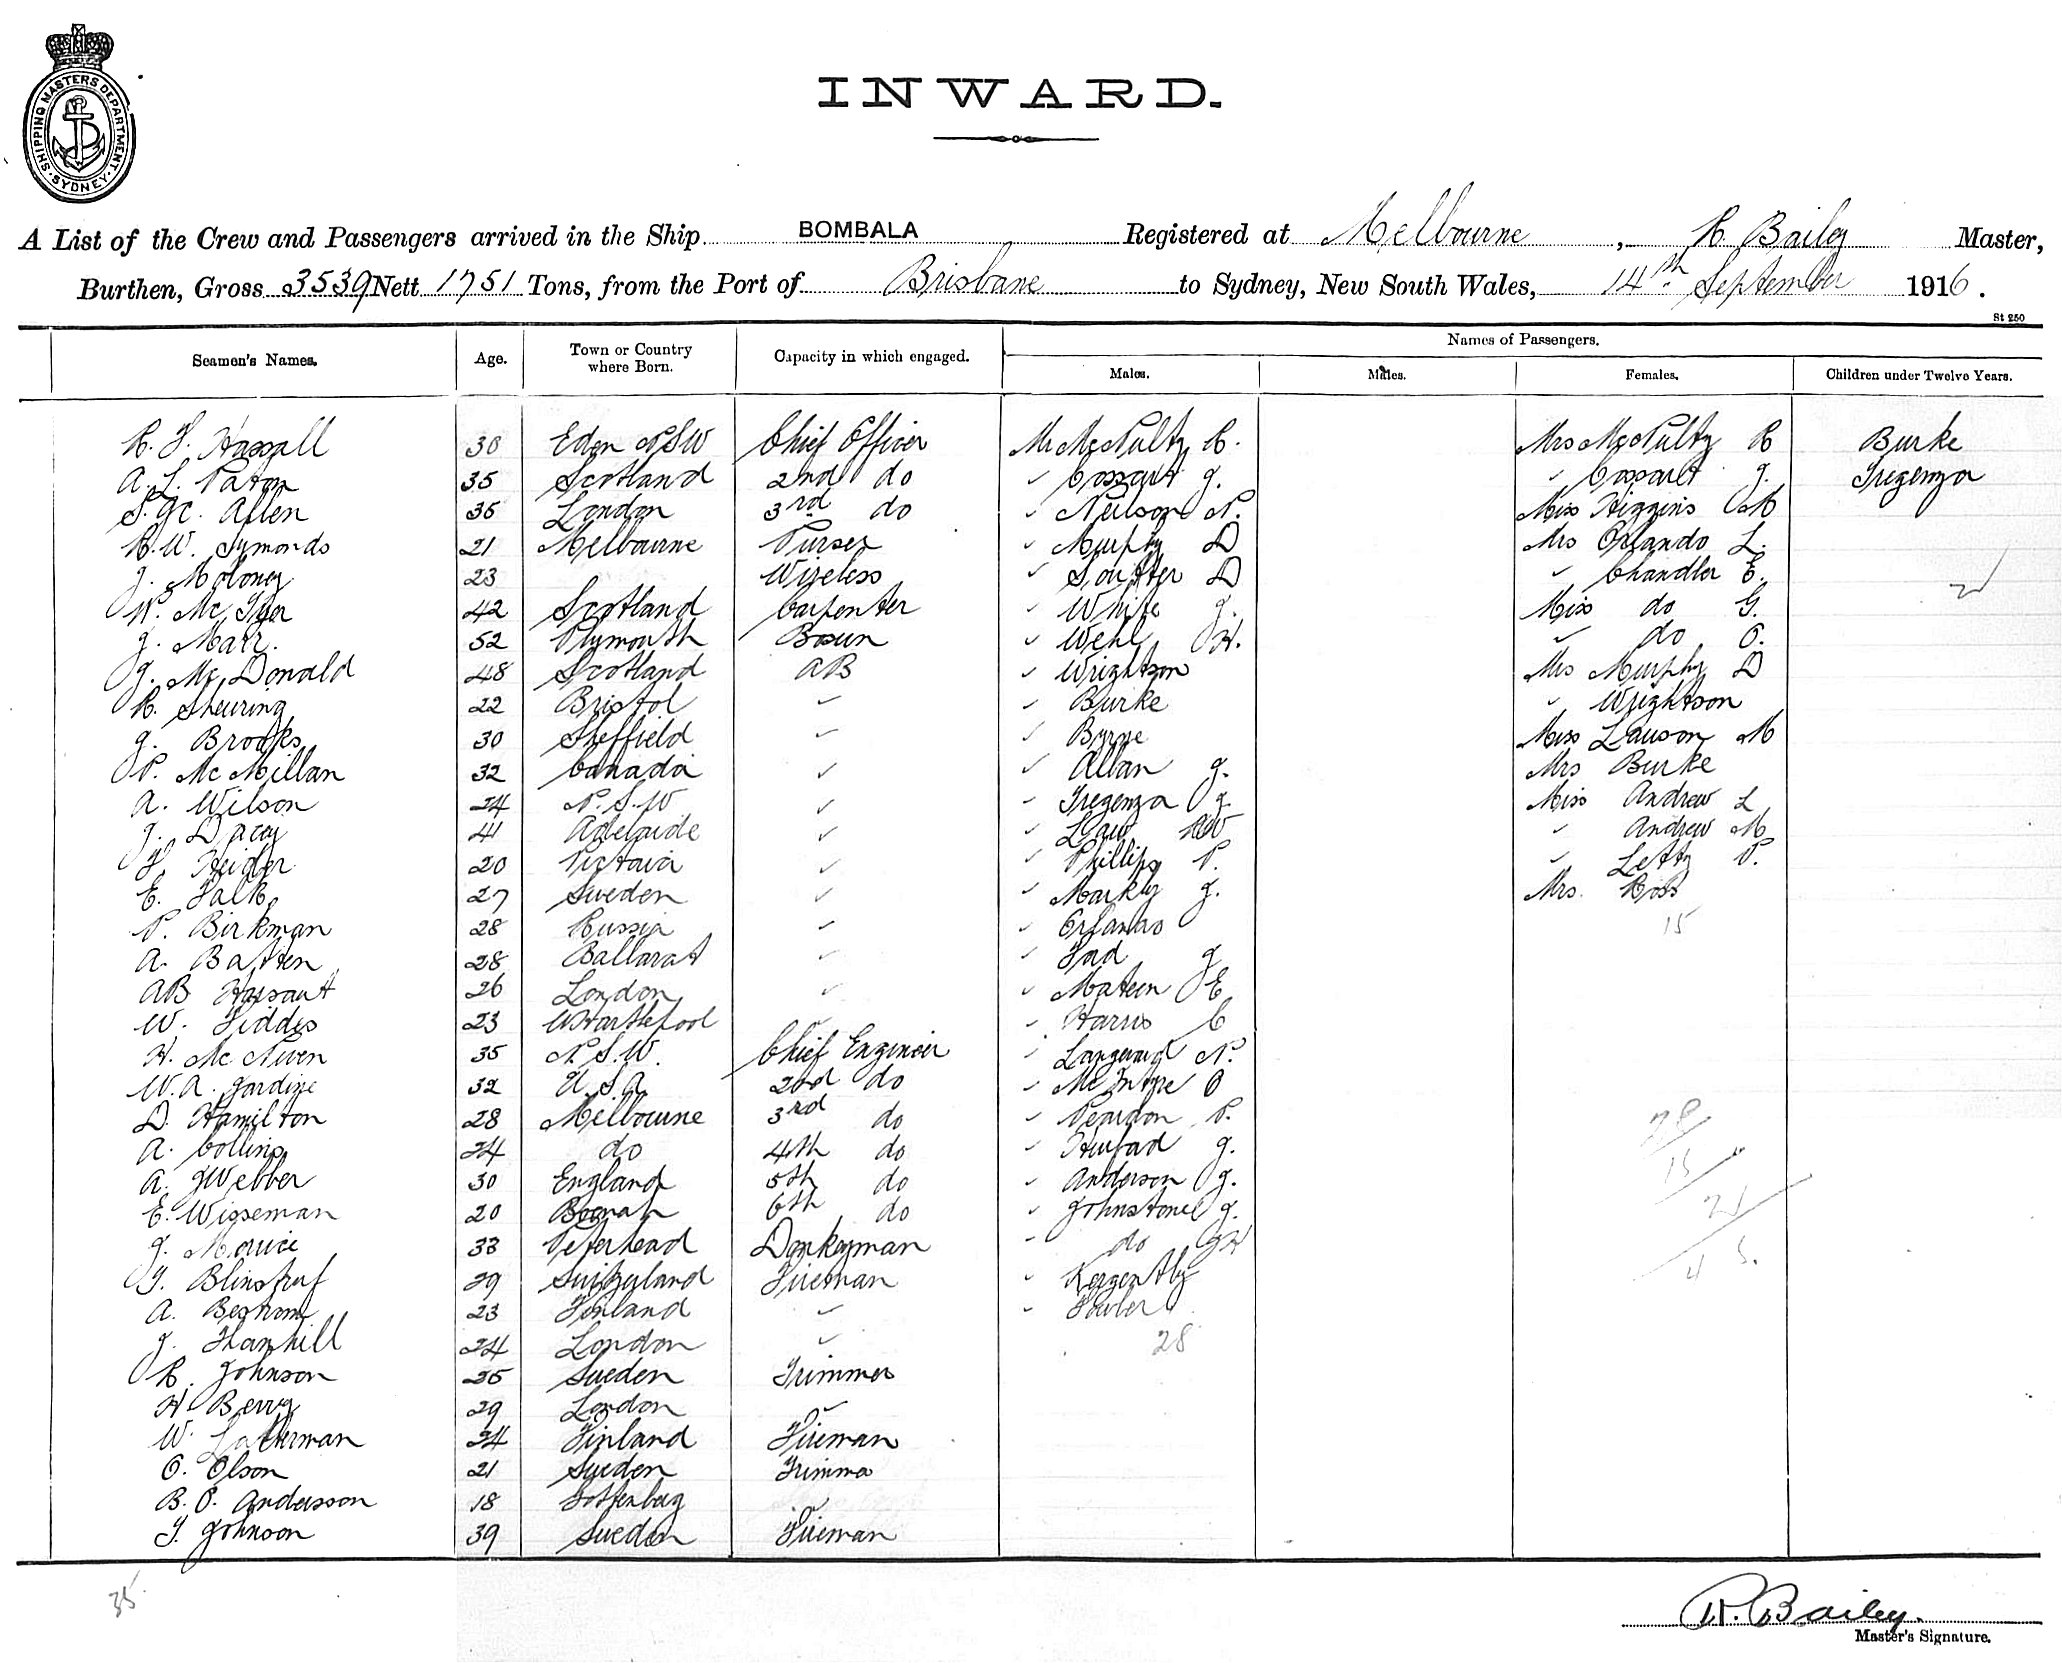 SHIPPING MASTERS DEPARTMENT. SYDNEY.
INWARD.
A List of the Crew and Passengers arrived in the Ship BOMBALA Registered at Melbourne, R. Bailey Master,
Burthen, Gross 3539 Nett 1751 Tons, from the Port of Brisbane to Sydney, New South Wales, 14th September 1916.
St 250
Names of Passengers.
Seamen's Names. Age. Town or Country where Born. Capacity in which engaged. Males. Males. Females. Children under Twelve Years.
38 Eden NSW Chief Officer Mr McNulty R. Mrs McNulty R Burke
A. L. Paton 35 Scotland 2nd do " Cossart J. " Cossart J. Tregenza
Allen 35 London 3rd do " Neilson N. Miss Higgins M
R. W. Symonds 21 Melbourne Purser " Murphy D Mrs Orlando L.
J. Moloney 23 Wireless " Soutter D " Chandler E.
42 Scotland Carpenter " White J. Miss do G.
J. Marr. 52 Plymouth Bosun " Wehl H. " do O.
J. McDonald 48 Scotland AB " Wrightson Mrs Murphy D
R. Shearing 22 Bristol " " Burke " Wrightson
J. Brooks 30 Sheffield " " Byrne Miss Lawson M
P. McMillan 32 Canada " " Allan J. Mrs Burke
A. Wilson 24 N.S.W " " Tregenza J. Miss Andrew L
J. Darcy 41 Adelaide " " Law RW " Andrew M
20 Victoria " " Phillips P. " Letty P.
E. Falk 27 Sweden " " J. Mrs. Ross
P. Birkman 28 Russia " " Orlando 15
A. Batten 28 Ballarat " " J
AB 26 London " " E
W. Fiddes 23 W Hartlepool " " Harris C
H. McNiven 35 N.S.W. Chief Engineer " N.
W. A. Jardine 32 U.S.A. 2nd do " McIntyre O
D. Hamilton 28 Melbourne 3rd do " P.
A. Collins 24 do 4th do " J.
A. J Webber 30 England 5th do " Anderson J.
E. Wisseman 20 Boonah 6th do " Johnstone J.
J. 33 Peterhead Donkeyman " do
29 Switzerland Fireman "
A. 23 Finland " " Fowler
J. 24 London " 28
R. Johnson 25 Sweden Trimmer
H Berry 29 London "
W. 24 Finland Fireman
O. Olson 21 Sweden Trimmer
B. O. Andersson 18 Gottenberg "
Johnson 39 Sweden Fireman
35
28
15
2
45.
R. Bailey.
Master's Signature.